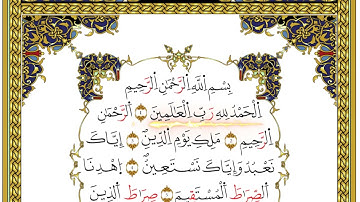 بِسْمِ اللَّهِ الرَّحْمَٰنِ الرَّحِيمِ
اِلْحَمْدُ لِلهِ رَبِّ الْعَالَمِينَ ۝ الرَّحْمَٰنِ
الرَّحِيمِ ۝ مَلِكِ يَوْمِ الدِّينِ ۝ إِيَّاكَ
نَعْبُدُ وَإِيَّاكَ نَسْتَعِينُ ۝ اِهْدِنَا
الصِّرَاطَ الْمُسْتَقِيمَ ۝ صِرَاطَ الَّذِينَ